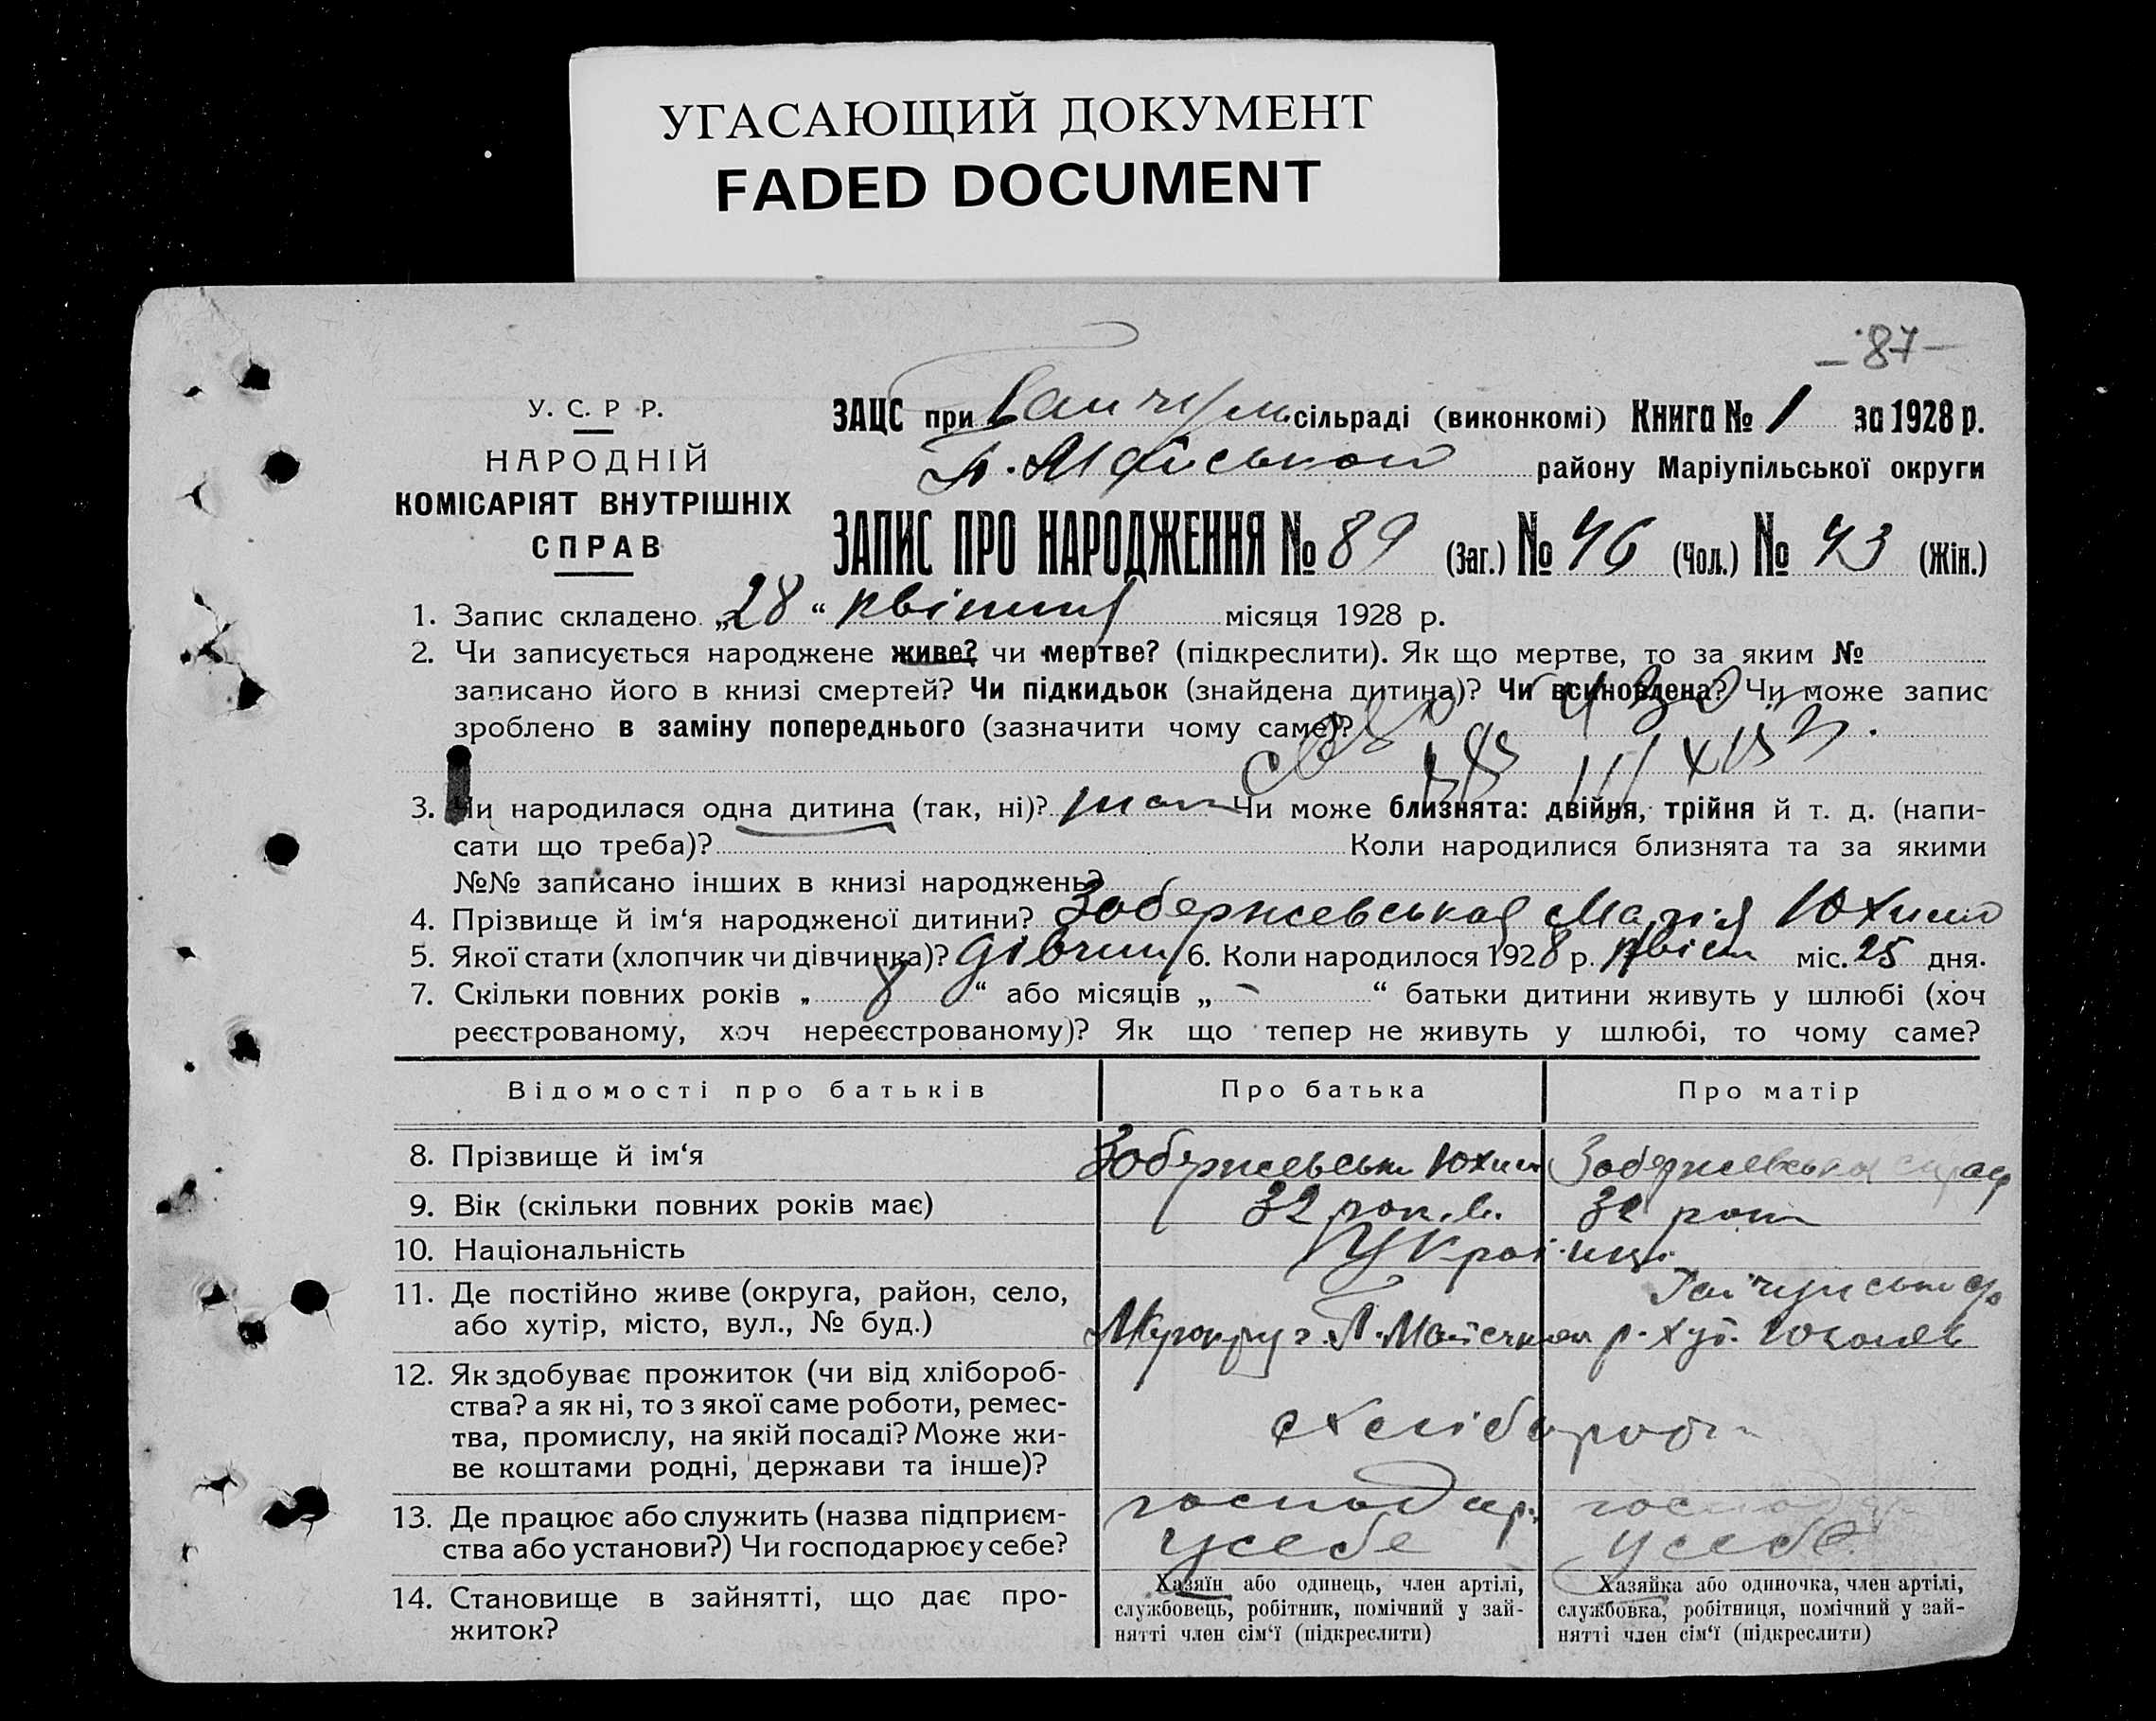 УГАСАЮЩИЙ ДОКУМЕНТ
FADED DOCUMENT
- 87 -
У. С. Р Р.
НАРОДНІЙ
КОМІСАРІЯТ ВНУТРІШНІХ
СПРАВ
ЗАЦС при сільраді (виконкомі) Книга № 1 за 1928 р.
району Маріупільської округи
ЗАПИС ПРО НАРОДЖЕННЯ № 89 (Заг.) № 46 (Чол.) № 43 (Жін.)
1. Запис складено „28“ квітня місяця 1928 р.
2. Чи записується народжене живе? чи мертве? (підкреслити). Як що мертве, то за яким №
записано його в книзі смертей? Чи підкидьок (знайдена дитина)? Чи всиновлена? Чи може запис
зроблено в заміну попереднього (зазначити чому саме)?
3. Чи народилася одна дитина (так, ні)? так Чи може близнята: двійня, трійня й т. д. (напи-
сати що треба)? Коли народилися близнята та за якими
№№ записано інших в книзі народжень?
4. Прізвище й ім‘я народженої дитини? Зобержевська Марія Юхим
5. Якої стати (хлопчик чи дівчинка)? дівчин 6. Коли народилося 1928 р. квіт міс. 25 дня.
7. Скільки повних років „ 8 “ або місяців „ - “ батьки дитини живуть у шлюбі (хоч
реєстрованому, хоч нереєстрованому)? Як що тепер не живуть у шлюбі, то чому саме?
Відомості про батьків Про батька Про матір
8. Прізвище й ім‘я Зобержевськ Юхим Зобержевська
9. Вік (скільки повних років має) 32 рок.
10. Національність Україн.
11. Де постійно живе (округа, район, село,
або хутір, місто, вул., № буд.)
12. Як здобуває прожиток (чи від хлібороб-
ства? а як ні, то з якої саме роботи, ремес-
тва, промислу, на якій посаді? Може жи-
ве коштами родні, держави та інше)?
Хлібороб
13. Де працює або служить (назва підприєм-
ства або установи?) Чи господарює у себе?
господар. господар
у себе у себе
14. Становище в зайнятті, що дає про-
житок?
Хазяїн або одинець, член артілі,
службовець, робітник, помічний у зай-
нятті член сім‘ї (підкреслити)
Хазяйка або одиночка, член артілі,
службовка, робітниця, помічний у зай-
нятті член сім‘ї (підкреслити)